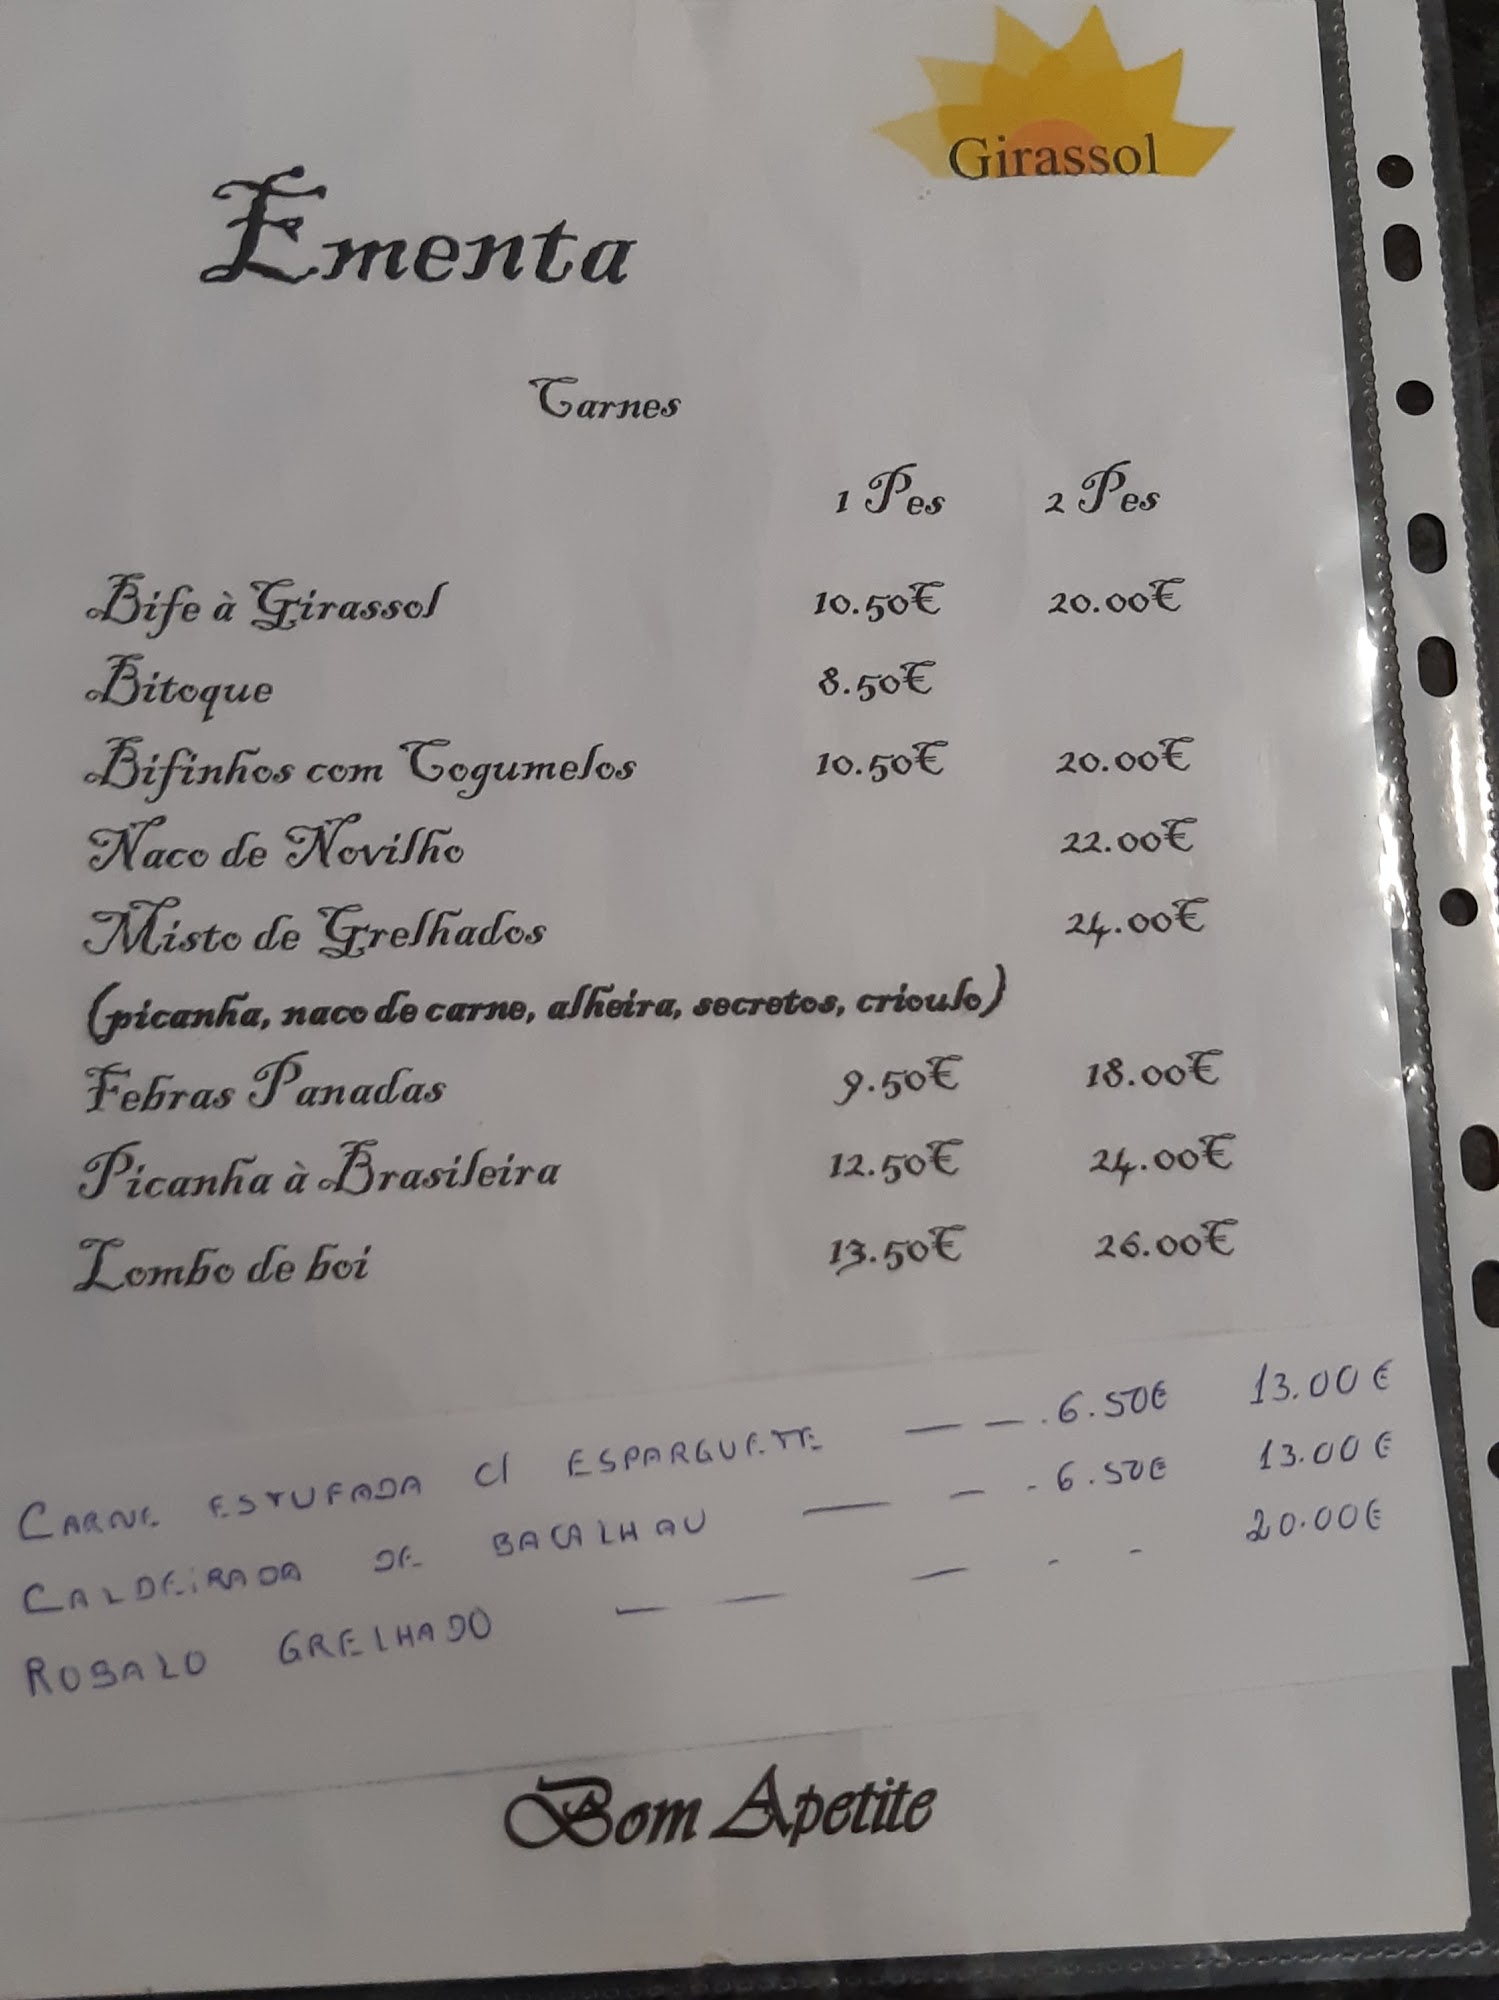 Girassol
Ementa
Carnes
1 Pes 2 Pes
Bife à Girassol 10.50€ 20.00€
Bitoque 8.50€
Bifinhos com Cogumelos 10.50€ 20.00€
Naco de Novilho 22.00€
Misto de Grelhados 24.00€
(picanha, naco de carne, alheira, secretos, crioulo)
Febras Panadas 9.50€ 18.00€
Picanha à Brasileira 12.50€ 24.00€
Lombo de boi 13.50€ 26.00€
CARNE ESTUFADA C/ ESPARGUETTE — — . 6.50€ 13.00€
CALDEIRADA DE BACALHAU — - - 6.50€ 13.00€
ROBALO GRELHADO — — — - - 20.00€
Bom Apetite